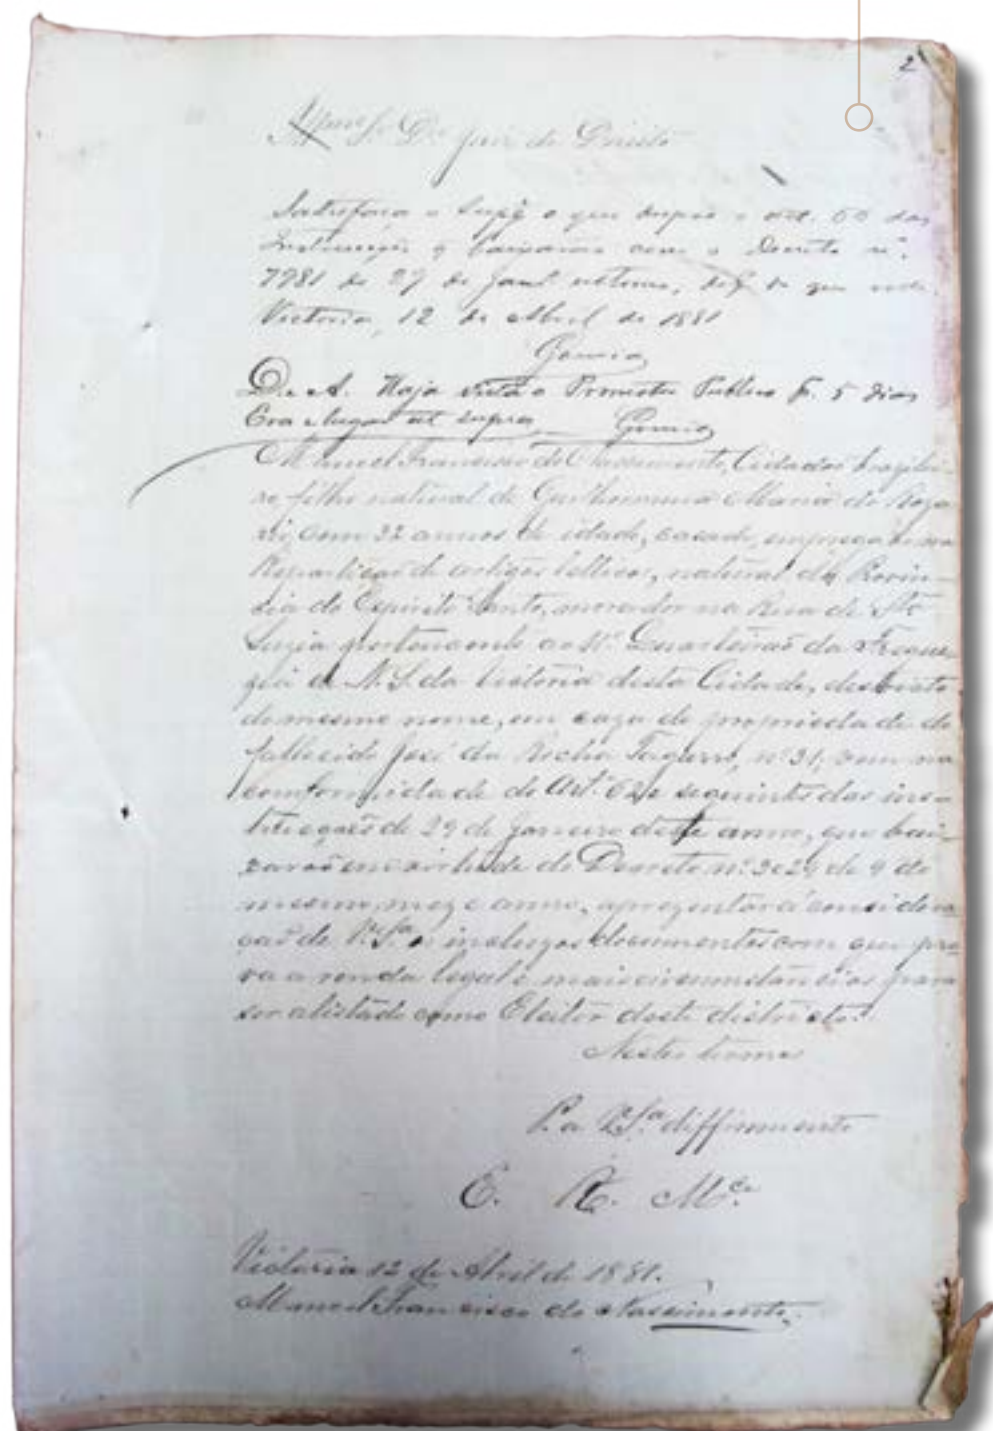 2
S. Dr. Juiz de Direito
Satisfaça o Supp.e o que dispõe o art. 60 das
Instrucções q baixarão com o Decreto n.
7981 de 29 de Jan.º ultimo,
Victoria, 12 de Abril de 1881
Gomes
D. e A. Haja vista o Promotor Publico p. 5 dias
Era e lugar ut supra Gomes
Manoel Francisco do Nascimento, Cidadão brazilei-
ro filho natural de Guilhermina Maria do Roza-
rio, com 32 annos de idade, casado, empregado na
Repartição de artigos bellicos, natural da Provin-
cia do Espirito Santo, morador na Rua de Sta
Luzia pertencente ao Quarteirão da Fregue-
zia de N. S. da Victoria desta Cidade, destricto
do mesmo nome, em caza de propriedade do
fallecido José da Rocha n.º 31, vem na
conformidade do Art.º 62 e seguintes das ins-
trucções de 29 de Janeiro deste anno, que bai-
xarão em virtude do Decreto n.º 3029 de 9 do
mesmo mez e anno, aprezentar á considera-
ção de V.Sa. os inclusos documentos com que pro-
va a renda legal e mais circumstancias para
ser alistado como Eleitor deste districto.
Nestes termos
P. a V.Sa. differimento
E. R. M.ce
Victoria 12 de Abril de 1881.
Manoel Francisco do Nascimento